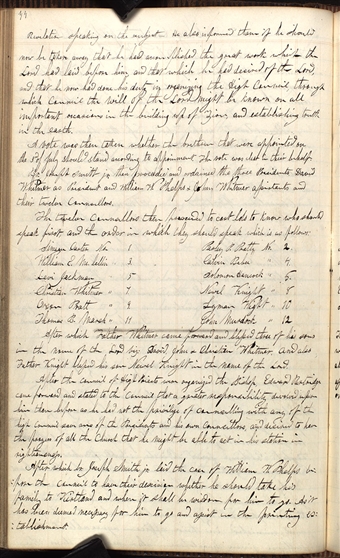 44
Revelation speaking on the subject. He also informed them if he should
now be taken away that he had accomplished the great work which the
Lord had laid before him, and that which he had desired of the Lord,
and that he now had done his duty in organizing the High Council, through
which Council the will of the Lord might be known on all
important occasions in the building up of Zion, and establishing truth
in the earth.
A vote was then taken whether the brethren that were appointed on
the 3d of July should stand according to appointment. The vote was
Joseph Smith jr then proceeded and ordained the three Presidents David
Whitmer as President and William W. Phelps & John Whitmer assistants and
their twelve Councellors.
The twelve Councellors then proceeded to cast lots to know who should
speak first and the order in which they should speak which is as follows
Simeon Carter No. 1 Parley P. Pratt No. 2
William E. Mc.lellin 3 Calvin Bebee " 4
Levi Jackman 5 Solomon Hancock " 6
Christian Whitmer " 7 Newel Knight " 8
Orson Pratt " 9 Lyman Wight " 10
Thomas B. Marsh " 11 John Murdock " 12
After which Father Whitmer came forward and blessed three of his sons
in the name of the Lord viz: David, John & Christian Whitmer. And also
Father Knight blessed his son Newel Knight in the name of the Lord.
After the council of High Priests were organized the Bishop, Edward Partridge
came forward and stated to the Council that a greater responsibility devolved upon
him than before as he has not the privilege of councelling with any of the
high council save any of the Presidents and his own Councellors, and desired to have
the prayers of all the Church that he might be able to act in his station in
righteousness.
After which br Joseph Smith jr laid the case of William W. Phelps be-
fore the council to have their decision whether he should take his
family to Kirtland and when it shall be wisdom for him to go. As it
has been deemed necessary for him to go and assist in the printing es-
:tablishment.